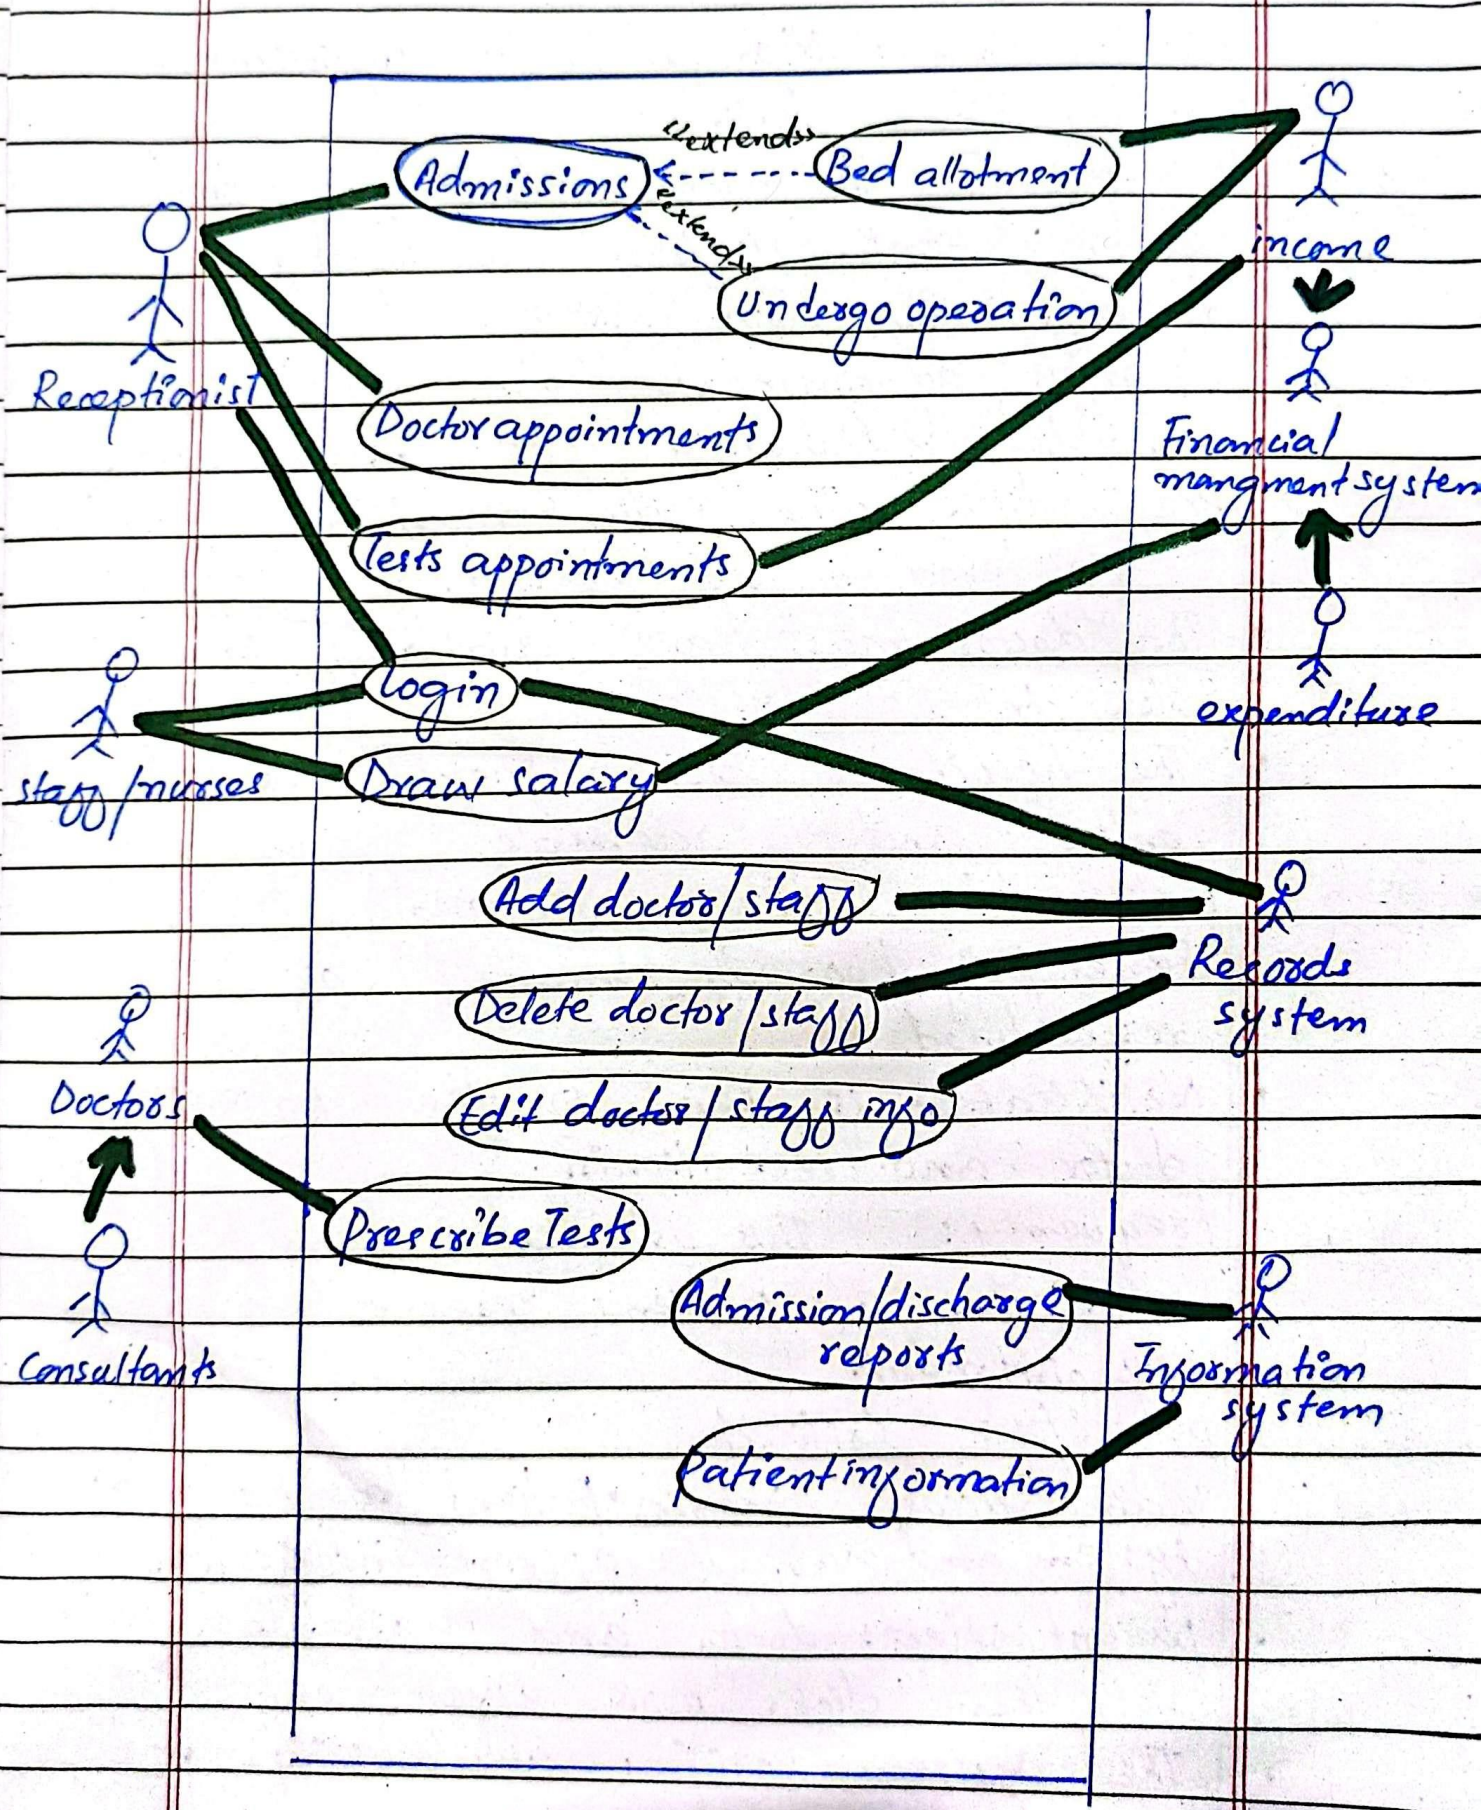 «extends»
Admissions
Bed allotment
«extends»
income
Undergo operation
Receptionist
Doctor appointments
Financial
mangment system
Tests appointments
login
expenditure
staff/nurses
Draw salary
Add doctor/staff
Records
system
Delete doctor/staff
Doctors
Edit doctor/staff info
Prescribe Tests
Admission/discharge
reports
Consultants
Information
system
Patient information